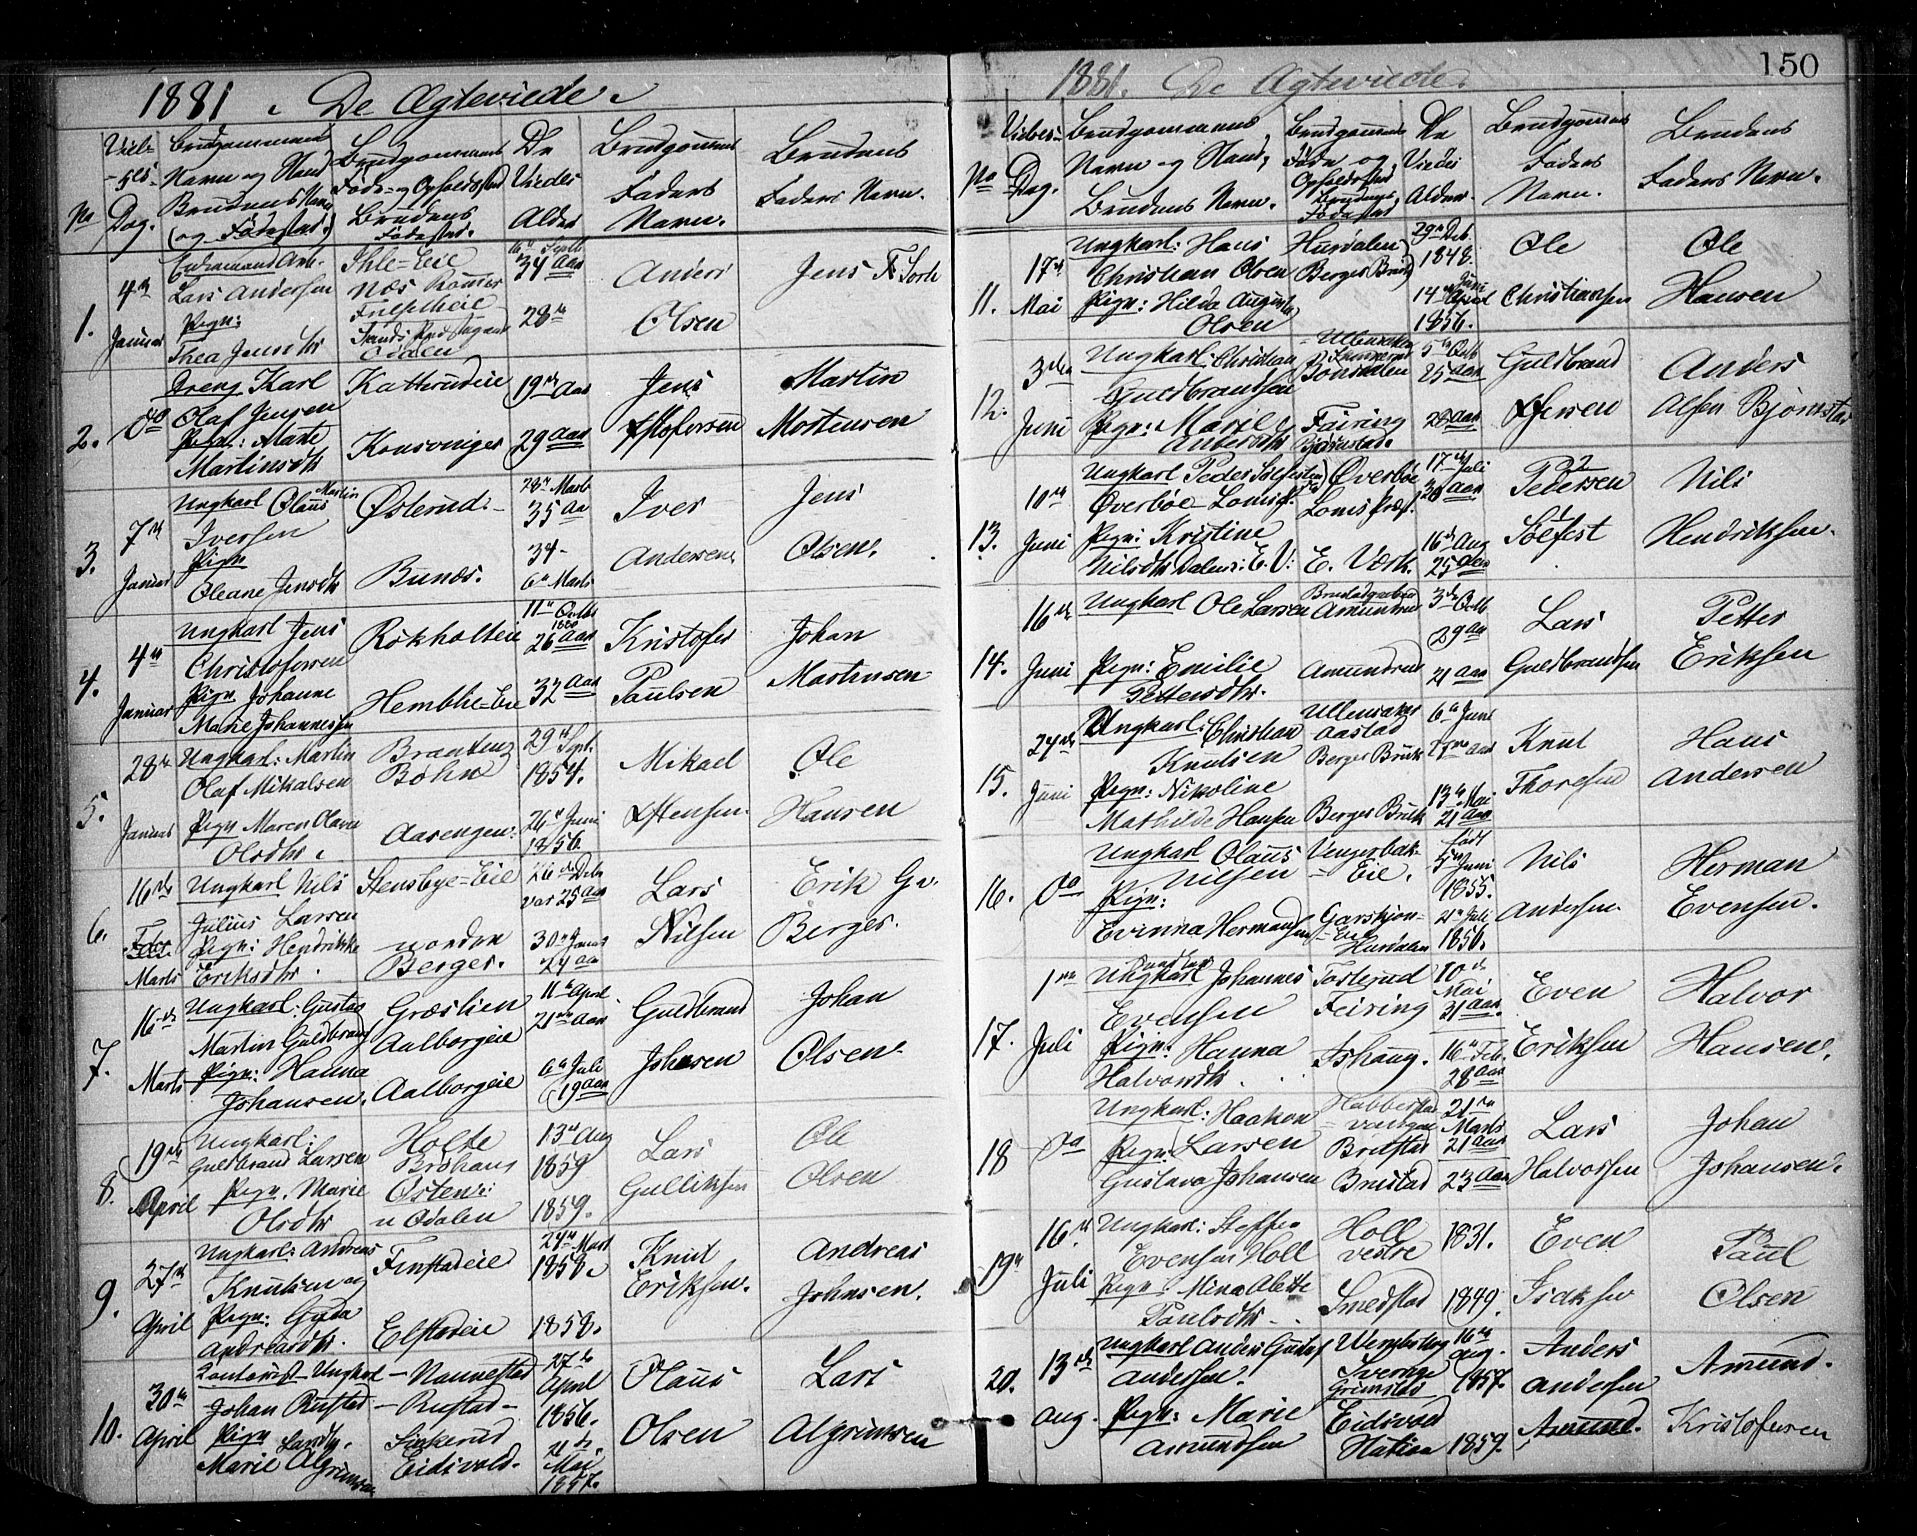 1881 De Ægteviede
Viel-
ses-
Dag.
No
Brudgommens
Navn og Stand
Brudens Navn
(og Fødested)
Brudgommens
Føde- og Opholdssted
Brudens
Fødested.
De
Viedes
Alder
Brudgommens
Faders
Navn.
Brudens
Faders Navn.
1.
4de
Januar
Enkemand Arb.
Lars Andersen
Pigen:
Thea Jensdtr
Ihle-Eie
Næs Romer
Odalen
6te Septb
34 Aar
28de
Anders
Olsen
Jens
2.
Do
Dreng Karl
Olaf Jensen
Pigen: Marte
Martinsdtr
Katterudeie
Konsvinger
19de Aar
29 Aar
Jens
Martin
Mortensen
3.
7de
Januar
Ungkarl Olaus Martin
Iversen
Pigen
Oleane Jensdtr
Østerud
Bunæs.
28de Marts
35 Aa
34
6te Marts
Iver
Andersen
Jens
Olsen.
4.
4de
Januar
Ungkarl Jens
Christofersen
Pigen Johanne
Marie Johannesen
Rokholteie
Hemblie-Eie
11te Octbr
1880
26 Aar
32 Aar
Kristofer
Paulsen
Johan
Martinsen
5.
28de
Januar
Ungkarl: Martin
Olaf Mikalsen
Pigen Maren Olava
Olsdtr.
Braaten
Bøhn
Aasengen.
29de Sept.
1854.
26de Juni
1856
Mikael
Ole
Hansen
6.
16de
Marts
Ungkarl Nils
Julius Larsen
Pigen: Hendrikke
Eriksdtr.
Stensbye-Eie
norden
Berger.
26de Debr
var 25 Aar
30te Janu
24 Aa
Lars
Nilsen
Erik
Berger.
7.
16de
Marts
Ungkarl: Gustav
Martin Guldbrand
Pigen: Hanna
Johansen.
Græslien
Aalborgeie
Aalborgeie
11te April
21 Aar
6te Juli
19 Aar
Guldbrand
Johesen
Johan
Olsen.
8.
19de
April
Ungkarl:
Guldbrand Larsen
Pigen. Marie
Olsdtr
Holte
Østen
Odalen
13de Aug
1859
1859.
Lars
Gulliksen
Ole
Olsen
9.
27de
April
Ungkarl: Andreas
Knutsen og
Pigen: Gyda
Andreasdtr.
Finstadeie
Elstadeie
24de Mart
1858.
1858.
Knut
Eriksen.
Andreas
Johnsen.
10.
30te
April
Kontorist Ungkarl
Johan Rustad
Pigen
Marie Algrimsen
Nannestad
Rustad
Eidsvold.
27de
April
1856.
Mai
1857.
Olaus
Olsen
Lars
Algrimsen
150
1881. De Ægteviede.
No
Vielses-
Dag.
Brudgommens
Navn og Stand,
Brudens Navn.
Brudgommens
Føde og
Opholdssted
Brudens
Fødested
De
Viedes
Alder.
Brudgommens
Faders
Navn.
Brudens
Faders Navn.
11.
17de
Mai
Ungkarl: Hans
Christian Olsen
Pigen: Hilda Augusta
Olsen
Hurdalen
Berger Brug
29de Deb.
1848.
14de
1856.
Ole
Christiansen
Ole
Hansen
12.
3die
Juni
Ungkarl: Christian
Guldbrandsen
Pigen: Marie
Andersdtr
Feiring
Bjørnstad.
5te Octb
25 Aar
28 Aar
Guldbrand
Anders
Olsen Bjørnstad
13.
10de
Juni
Ungkarl Peder
Øverbøe Lomis
Pigen: Kristine
Nilsdtr
Øverbøe
Lomis Præst.
E. Værk.
17de Juli
16de Aug
25 Aar
Pedersen
Nils
Hendriksen.
14.
16de
Juni
Ungkarl Ole Larsen
Pigen: Emilie
Pettersdtr.
Amundrud
Amundrud
3de Octb
29 Aa
21 Aar
Lars
Guldbrandsen
Petter
Eriksen
15.
24de
Juni
Ungkarl: Christian
Knutsen
Pigen: Nikoline
Mathilde Hansen
Ullensaker
Aastad
Berger Bruk
Berger Bruk
6te Juni
13de Mai
21 Aar
Knut
Thoresen
Hans
Andersen
16.
Do
Ungkarl Olaus
Nilsen
Pigen:
Evinna Hermansen
Vengerbak-
Eie.
Garsjøn-
Eie
Hurdalen
født
Juni
1855.
21de Juli
1856.
Nils
Andersen.
Herman
Evensen.
17.
1ste
Juli
Ungkarl Johannes
Evensen
Pigen: Hanna
Halvorsdtr.
Tosterud
Feiring
Ishoug.
10de
Mai
31 Aar.
16de Feb.
28 Aar
Even
Eriksen
Halvor
Hansen.
18
Do
Ungkarl: Haakon
Larsen
Pigen
Gustava Johansen
Habberstad
Brustad
21de
Marts
21 Aar
23 Aar
Lars
Halvorsen
Johan
Johansen.
19.
16de
Juli
Ungkarl: Steffen
Evensen Holl
Pigen: Mina Alette
Paulsdtr.
Holl
vestre
Smedstad
1831.
1849.
Even
Isaksen
Paul
Olsen
20.
13de
Aug.
Ungkarl Anders Gustaf
Andersen.
Pigen: Marie
Amundsen
Sverige
Grimstad
Eidsvold
16de
Aug.
1857.
1859.
Anders
Andersen
Amund.
Amund.
Kristofersen